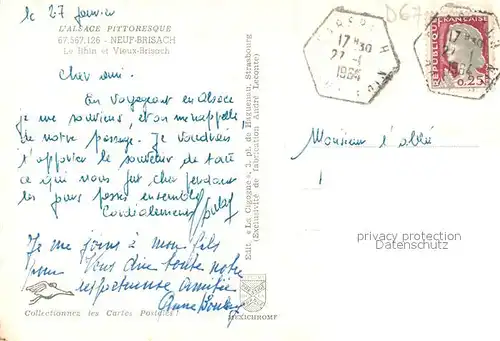 le 27 janvier
L'ALSACE PITTORESQUE
67.567.126 - NEUF-BRISACH
Le Rhin et Vieux-Brisach
Cher ami.
En voyageant en Alsace
je me souviens, et on m'appelle
de notre passage. Je voudrais
t'apporter le souvenir de tout
ce que nous fut cher pendant
les jours passés ensemble
Cordialement
Je me joins à mon fils
pour vous dire toute notre
respectueuse amitié
Anne
Collectionnez les Cartes Postales !
Edit. « La Cigogne », 3, pl. de Haguenau, Strasbourg
(Exclusivité de fabrication André Leconte)
MEXICHROME
D67
17H30
27-1
1964
REPUBLIQUE FRANÇAISE
0,25
Monsieur l'abbé
privacy protection
watermark